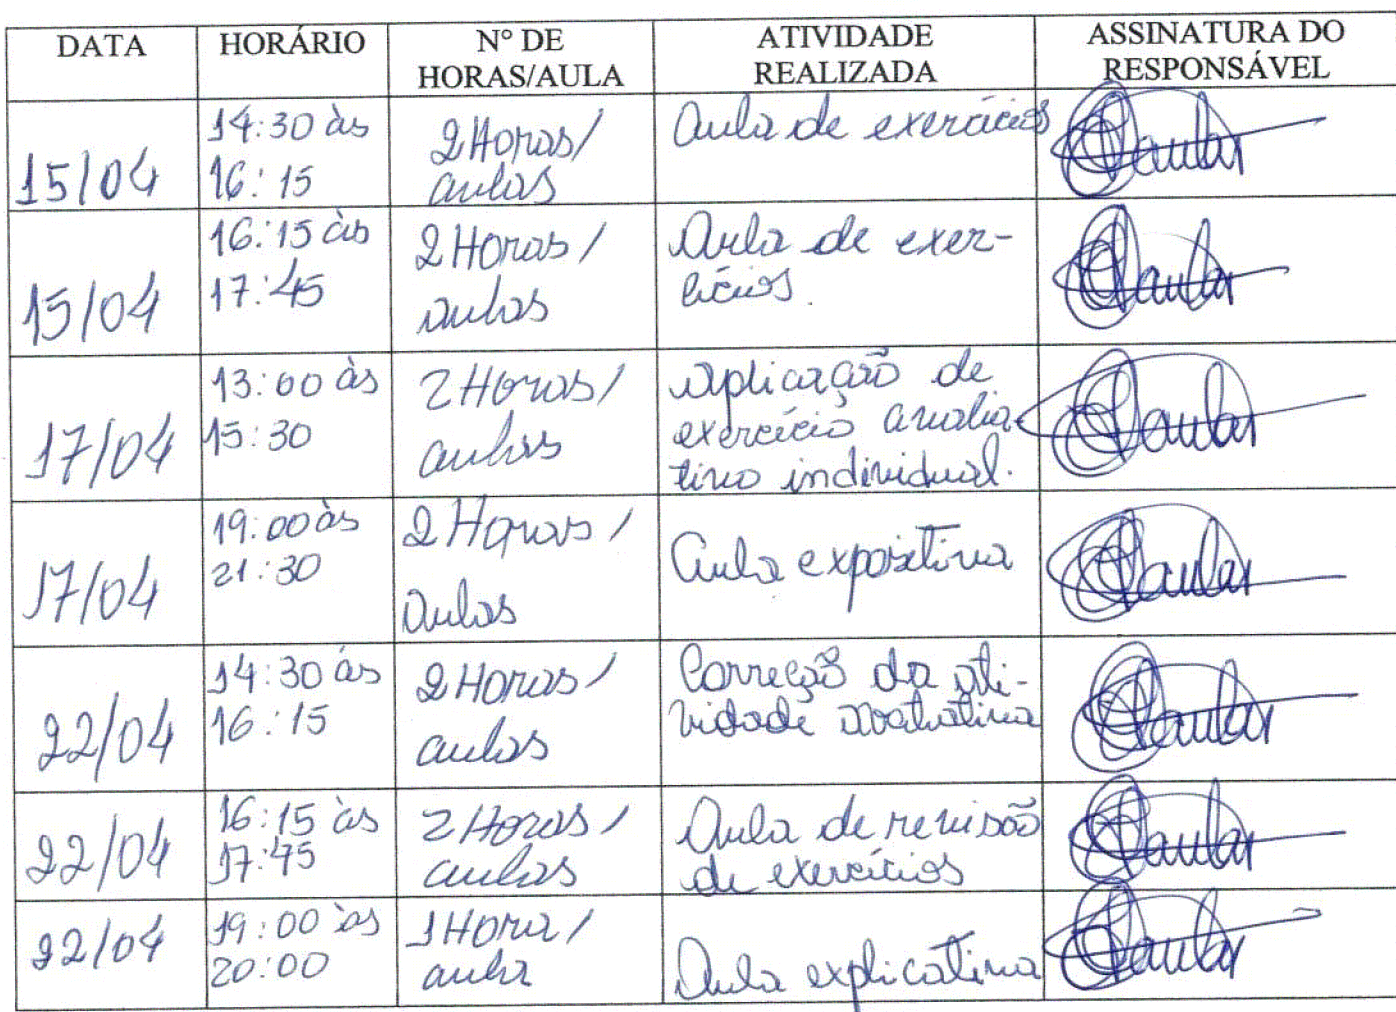 DATA HORÁRIO N° DE HORAS/AULA ATIVIDADE REALIZADA ASSINATURA DO RESPONSÁVEL
15/04 14:30 às 16:15 2 Horas/ aulas Aula de exercícios Paula
15/04 16:15 às 17:45 2 Horas/ aulas Aula de exer- cícios. Paula
17/04 13:00 às 15:30 2 Horas/ aulas aplicação de exercício avalia- tivo individual. Paula
17/04 19:00 às 21:30 2 Horas/ Aulas Aula expositiva Paula
22/04 14:30 às 16:15 2 Horas/ aulas Correção da ati- vidade avaliativa Paula
22/04 16:15 às 17:45 2 Horas/ aulas Aula de revisão de exercícios Paula
22/04 19:00 às 20:00 1 Hora/ aula Aula explicativa Paula